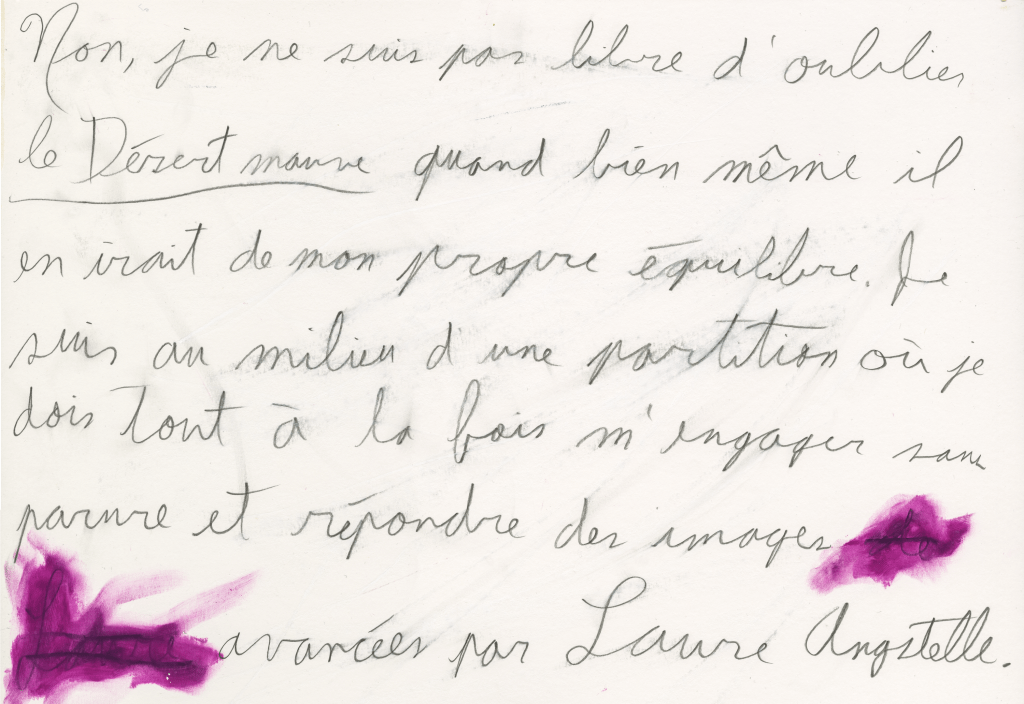 Non, je ne suis pas libre d'oublier
le Désert mauve quand bien même il
en irait de mon propre équilibre. Je
suis au milieu d'une partition où je
dois tout à la fois m'engager sans
parure et répondre des images de
Laure avancées par Laure Angstelle.